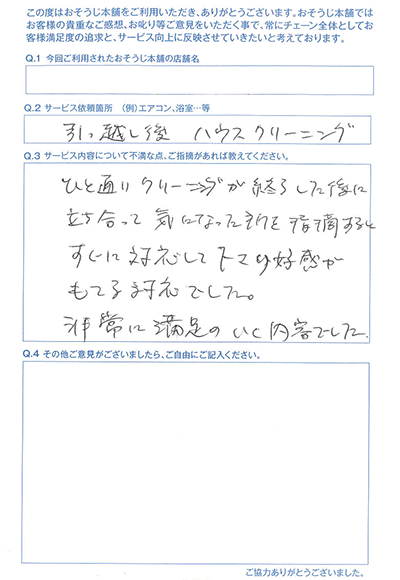 この度はおそうじ本舗をご利用いただき、ありがとうございます。おそうじ本舗では
お客様の貴重なご感想、お叱り等ご意見をいただく事で、常にチェーン全体としてお
客様満足度の追求と、サービス向上に反映させていきたいと考えております。
Q.1 今回ご利用されたおそうじ本舗の店舗名
Q.2 サービス依頼箇所 (例)エアコン、浴室…等
引っ越し後 ハウスクリーニング
Q.3 サービス内容について不満な点、ご指摘があれば教えてください。
ひと通りクリーニングが終了した後に
立ち合って気になった所を指摘すると
すぐに対応して下さり好感が
もてる対応でした。
非常に満足のいく内容でした。
Q.4 その他ご意見がございましたら、ご自由にご記入ください。
ご協力ありがとうございました。